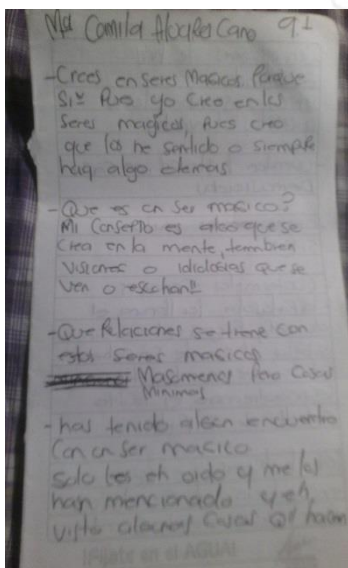 Ma Camila Alvarez Cano 9.1
-Crees en seres Magicos Porque
Si pues yo creo en los
seres magicos, pues creo
que los he sentido o siempre
haq algo demas
-Que es un ser magico?
Mi Conserto es algo que se
crea en la mente, tambien
visiones o idiologias que se
ven o escuchan
-Que Relaciones se tiene con
estos seres magicos
Masomenos Pero Cosas
Minimas
-has tenido algun encuentro
Con un ser magico
solo les eh oido y me los
han mencionado y eh
visto algunas Cosas Q! hacen
en el AGUA!